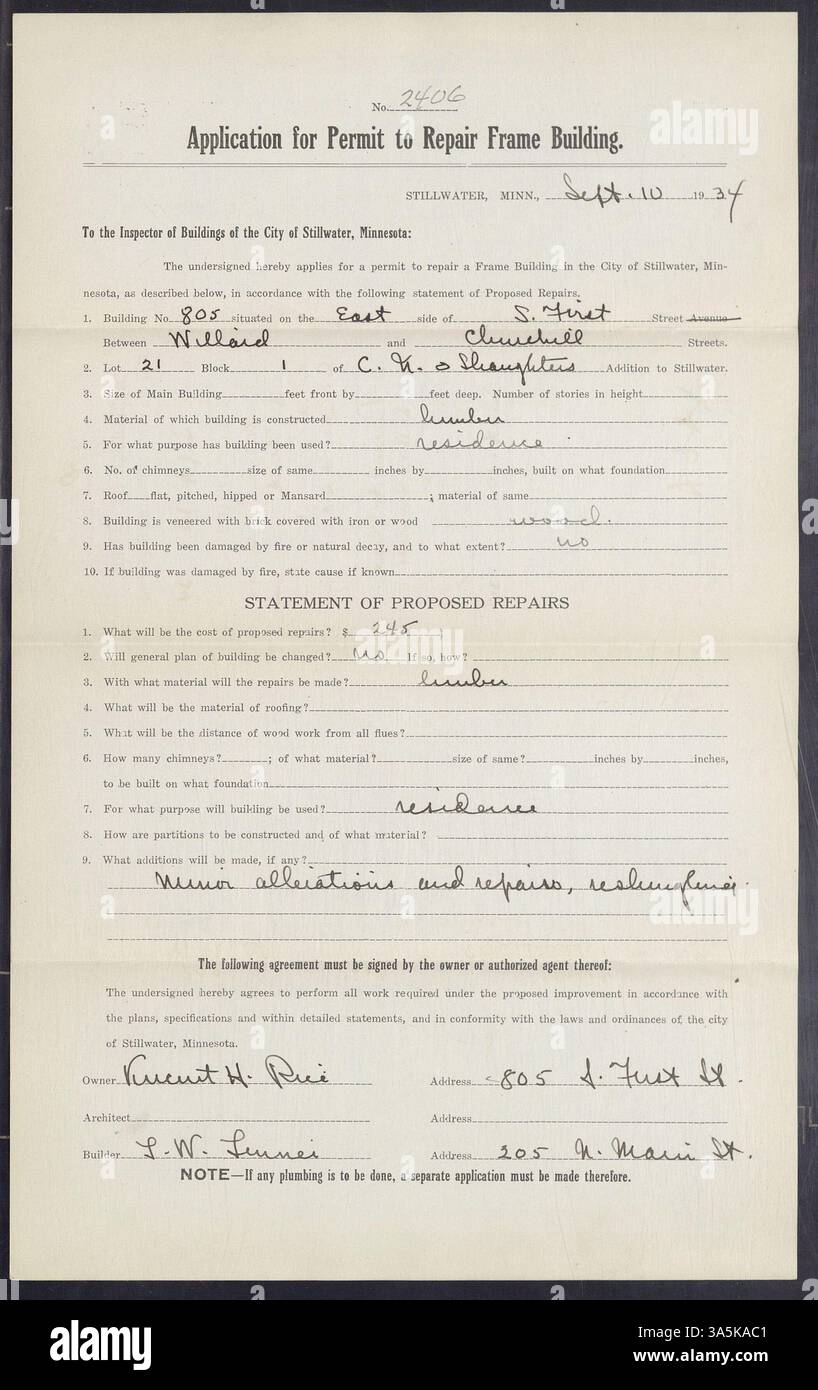 No. 2406
Application for Permit to Repair Frame Building.
STILLWATER, MINN., Sept. 10 1934
To the Inspector of Buildings of the City of Stillwater, Minnesota:
The undersigned hereby applies for a permit to repair a Frame Building in the City of Stillwater, Min-
nesota, as described below, in accordance with the following statement of Proposed Repairs.
1. Building No. 805 situated on the East side of S. First Street Avenue
Between Willard and Churchill Streets.
2. Lot 21 Block 1 of C. N. & Slaughters Addition to Stillwater.
3. Size of Main Building feet front by feet deep. Number of stories in height
4. Material of which building is constructed lumber
5. For what purpose has building been used? residence
6. No. of chimneys size of same inches by inches, built on what foundation
7. Roof flat, pitched, hipped or Mansard ; material of same
8. Building is veneered with brick covered with iron or wood wood.
9. Has building been damaged by fire or natural decay, and to what extent? no
10. If building was damaged by fire, state cause if known
STATEMENT OF PROPOSED REPAIRS
1. What will be the cost of proposed repairs? $ 245
2. Will general plan of building be changed? no If so, how?
3. With what material will the repairs be made? lumber
4. What will be the material of roofing?
5. What will be the distance of wood work from all flues?
6. How many chimneys? ; of what material? size of same? inches by inches,
to be built on what foundation
7. For what purpose will building be used? residence
8. How are partitions to be constructed and of what material?
9. What additions will be made, if any?
Minor alterations and repairs, reshingling.
The following agreement must be signed by the owner or authorized agent thereof:
The undersigned hereby agrees to perform all work required under the proposed improvement in accordance with
the plans, specifications and within detailed statements, and in conformity with the laws and ordinances of the city
of Stillwater, Minnesota.
Owner Vincent H. Rice Address 805 S. First St.
Architect Address
Builder W. Address 205 N. Main St.
NOTE—If any plumbing is to be done, a separate application must be made therefore.
alamy
Image ID: 3A5KAC1
www.alamy.com